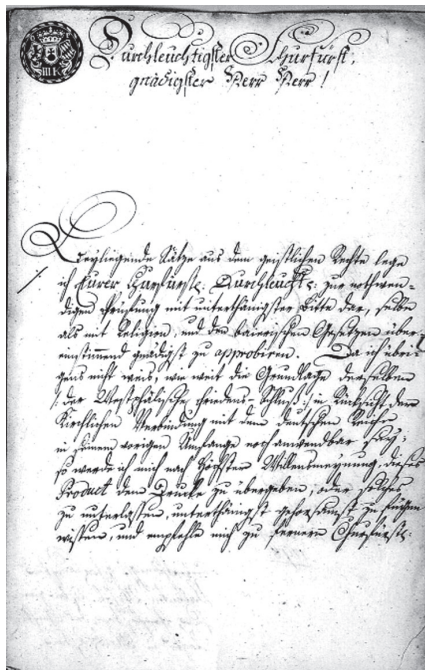 III K
Durchleuchtigster Churfürst,
gnädigster Herr Herr!
Beyliegende Sätze aus dem geistlichen Rechte lege
ich Eurer Churfürstl: Durchleucht: zur nothwen-
digen Prüfung mit unterthänigster Bitte dar, selbe
als mit Religion, und den baierischen Gesetzen über-
einstimmend gnädigst zu approbiren. Da ich übri-
gens nicht weis, wie weit die Grundlage derselben
der Westphälische Friedens-Schluß, in Rücksicht der
Kirchlichen Verbindung mit dem deutschen Reiche
in seinem vorigen Umfange noch anwendbar sey;
so werde ich mich nach höchster Willensmeynung, dieses
Product dem Drucke zu übergeben, oder solches
zu unterlassen, unterthänigst gehorsamst zu fügen
wissen, und empfehle mich zu fernere Churfürstl: